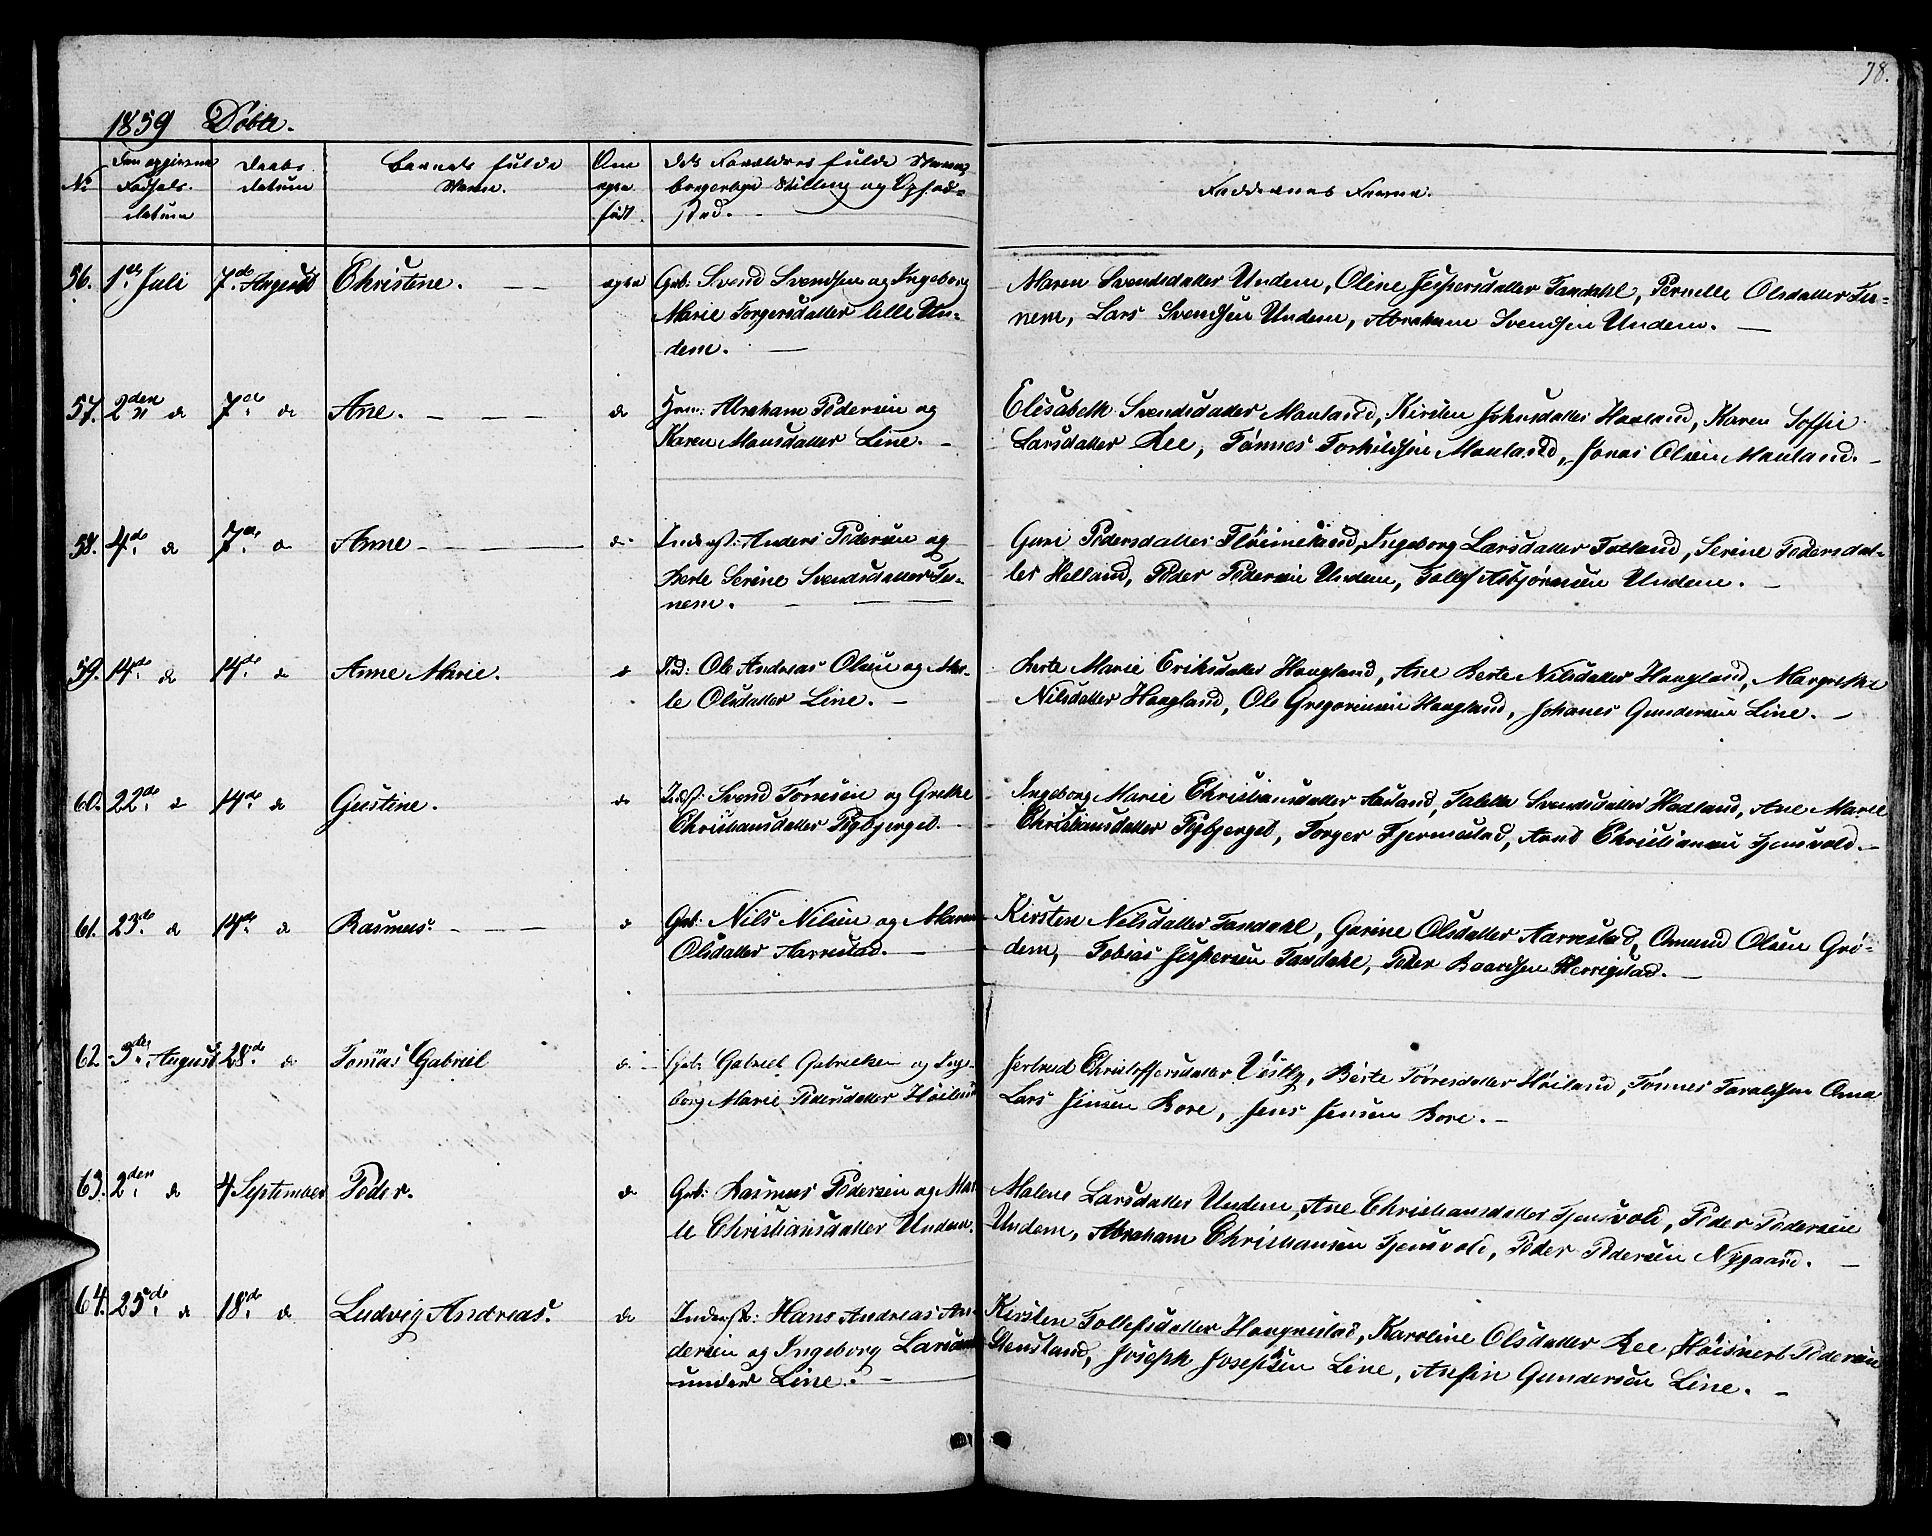 78.
1859 Døbte.
No
Den opgivne Fødsels- datum
Daabs datum
Barnets fulde Navn.
Om egte født.
Dets Forældres fulde Navne, borgerlige Stilling og Opholdsted.
Faddernes Navne.
56. 1ste Juli 7de August Christene. egte
Gbr: Svend Svendsen og Ingeborg
Marie Torgersdatter lille Un-
dem.
Maren Svendsdatter Undem, Oline Jespersdatter Tandahl, Pernelle Olsdatter Tu-
nem, Lars Svendsen Undem, Abraham Svendsen Undem.
57. 2den do 7de do Ane. do
Hmd: Abraham Pedersen og
Karen Monsdatter Line.
Elisabeth Svendsdatter Mauland, Kirsten Johnsdatter Hauland, Karen Soffie
Larsdatter Ree, Tønnes Torkildsen Mauland, Jonas Olsen Mauland.
58. 4de do 7de do Anne do
Inderst: Anders Pedersen og
Berte Serine Svendsdatter Tu-
nem.
Guri Pedersdatter Fløineland, Ingeborg Larsdatter Tulland, Serine Pedersdat-
ter Helland, Peder Pedersen Undem, Tollef Asbjørnsen Undem.
59. 14de do 14de do Anne Marie. do
Pid: Ole Andreas Olsen og Mar-
te Olsdatter Line.
Berte Marie Eriksdatter Haugland, Ane Berte Nilsdatter Haugland, Margrethe
Nilsdatter Haugland, Ole Gregoriusen Haugland, Johanes Gundersen Line.
60. 22de do 14de do Gustine. do
Indst: Svend Tonesen og Grethe
Christiansdatter Rygbjerget.
Ingeborg Marie Christiansdatter Aasland, Talette Svendsdatter Hadland, Ane Marie
Christiansdatter Rygbjerget, Torger Fjermestad, Arnt Christiansen Tjensvold.
61. 23de do 14de do Rasmus. do
Gbr: Nils Nilsen og Maren
Olsdatter Aarrestad.
Kirsten Nilsdatter Tandahl, Gurine Olsdatter Aarrestad, Omund Olsen Grø-
dem, Tobias Jespersen Tandahl, Peder Baardsen Herrigstad.
62. 3de August 28de do Tomas Gabriel do
Gbr: Gabriel Gabrielsen og Inge-
borg Marie Pedersdatter Høiland
Jertrud Christoffersdatter Vestly, Berte Torresdatter Høiland, Tønnes Taraldsen Oma
Lars Jensen Bore, Jens Jensen Bore.
63. 2den do 4 September Peder. do
Gbr: Rasmus Pedersen og Mar-
te Christiansdatter Undem.
Malene Larsdatter Undem, Ane Christiansdatter Tjensvold, Peder Pedersen
Undem, Abraham Christiansen Tjensvold, Peder Pedersen Nygaard.
64. 25de do 18de do Ludvig Andreas. do
Inderst: Hans Andreas An-
dersen og Ingeborg Larsdatter
under Line.
Kirsten Tollefsdatter Haugnestad, Karoline Olsdatter Ree, Høisnert Pedersen
Stensland, Joseph Josephsen Line, Anfin Gundersen Line.